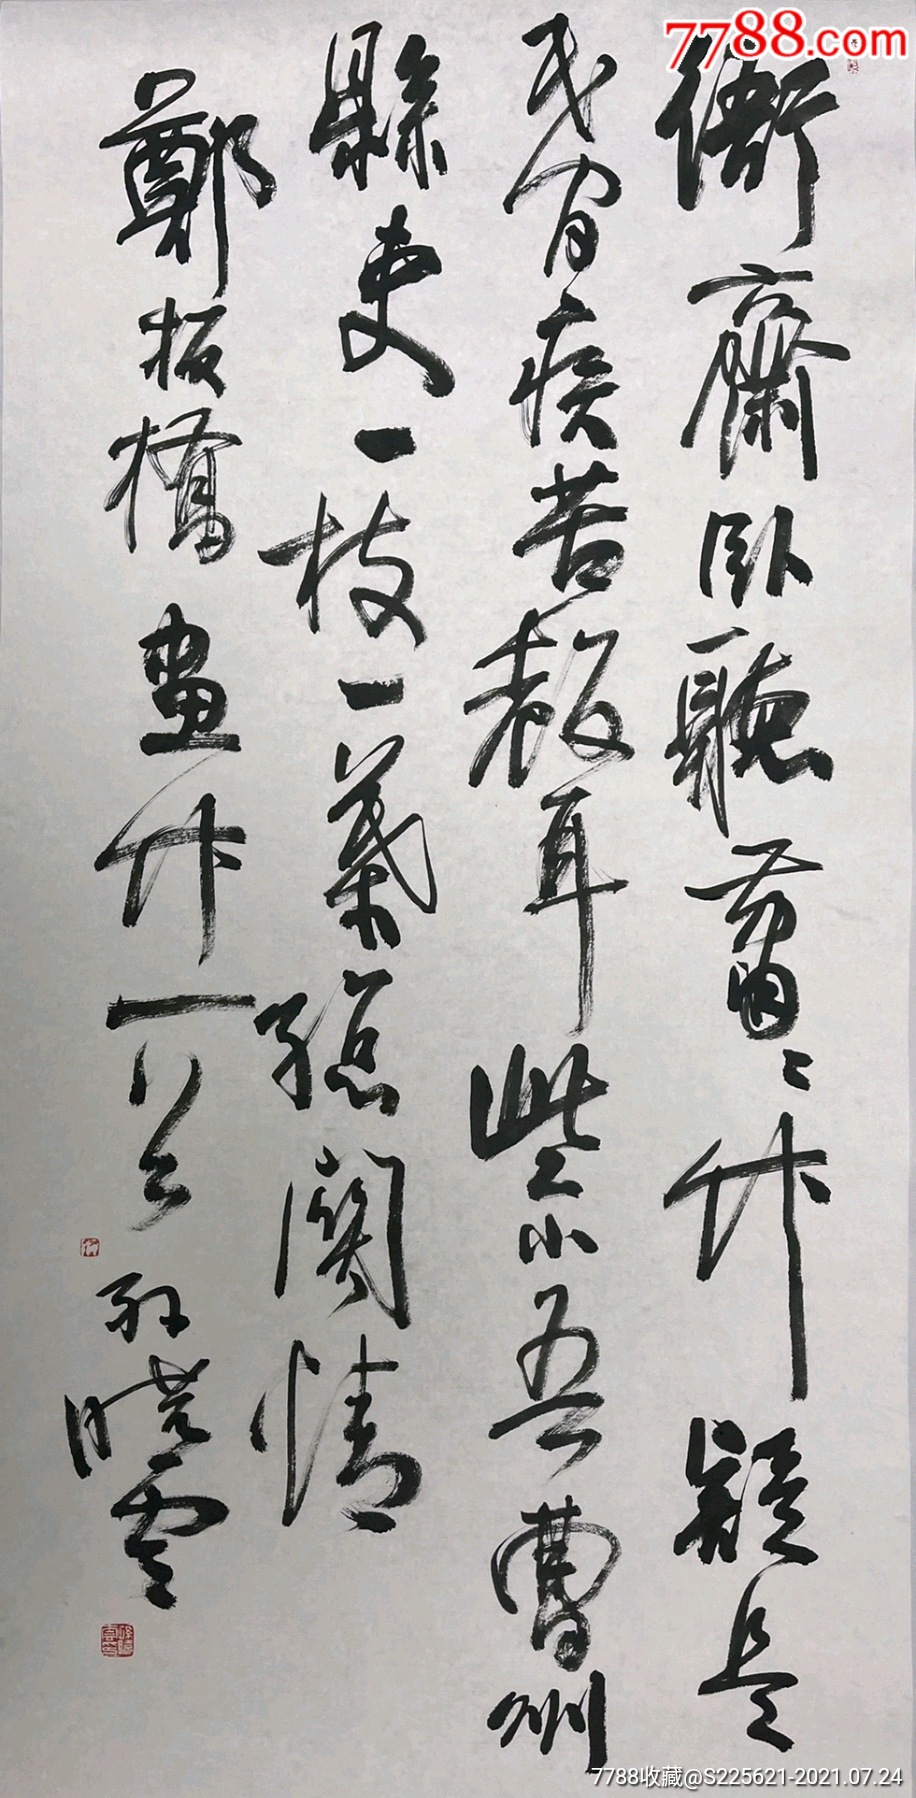 7788.com
衙齋卧聽蕭〻竹疑是
民間疾苦聲些小吾曹州
縣吏一枝一葉總關情
鄭板橋畫竹一
孫曉雲
7788收藏@S225621-2021.07.24